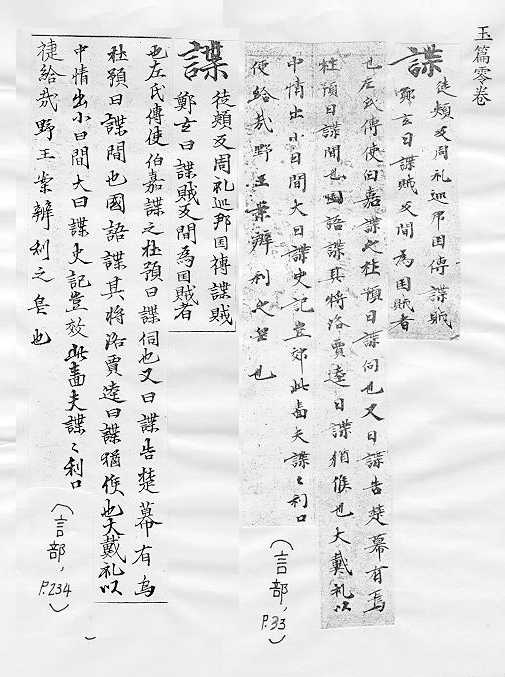 玉篇零卷
諜
徒頰反周礼巡邦国傳諜賊
鄭玄曰諜賊反間為国賊者
也左氏傳使伯嘉諜之杜預曰諜伺也又曰諜告楚幕有烏
杜預曰諜間也国語諜其將洛賈逵曰諜猶候也大戴礼以
中情出小曰間大曰諜史記豈效此嗇夫諜〻利口
便給哉野王案辨利之皃也
（言部，P.33）
諜
徒頰反周礼巡邦国傳諜賊
鄭玄曰諜賊反間為国賊者
也左氏傳使伯嘉諜之杜預曰諜伺也又曰諜告楚幕有烏
杜預曰諜間也國語諜其將洛賈逵曰諜猶候也大戴礼以
中情出小曰間大曰諜史記豈效此嗇夫諜〻利口
捷給哉野王案辨利之皃也
（言部，P.234）